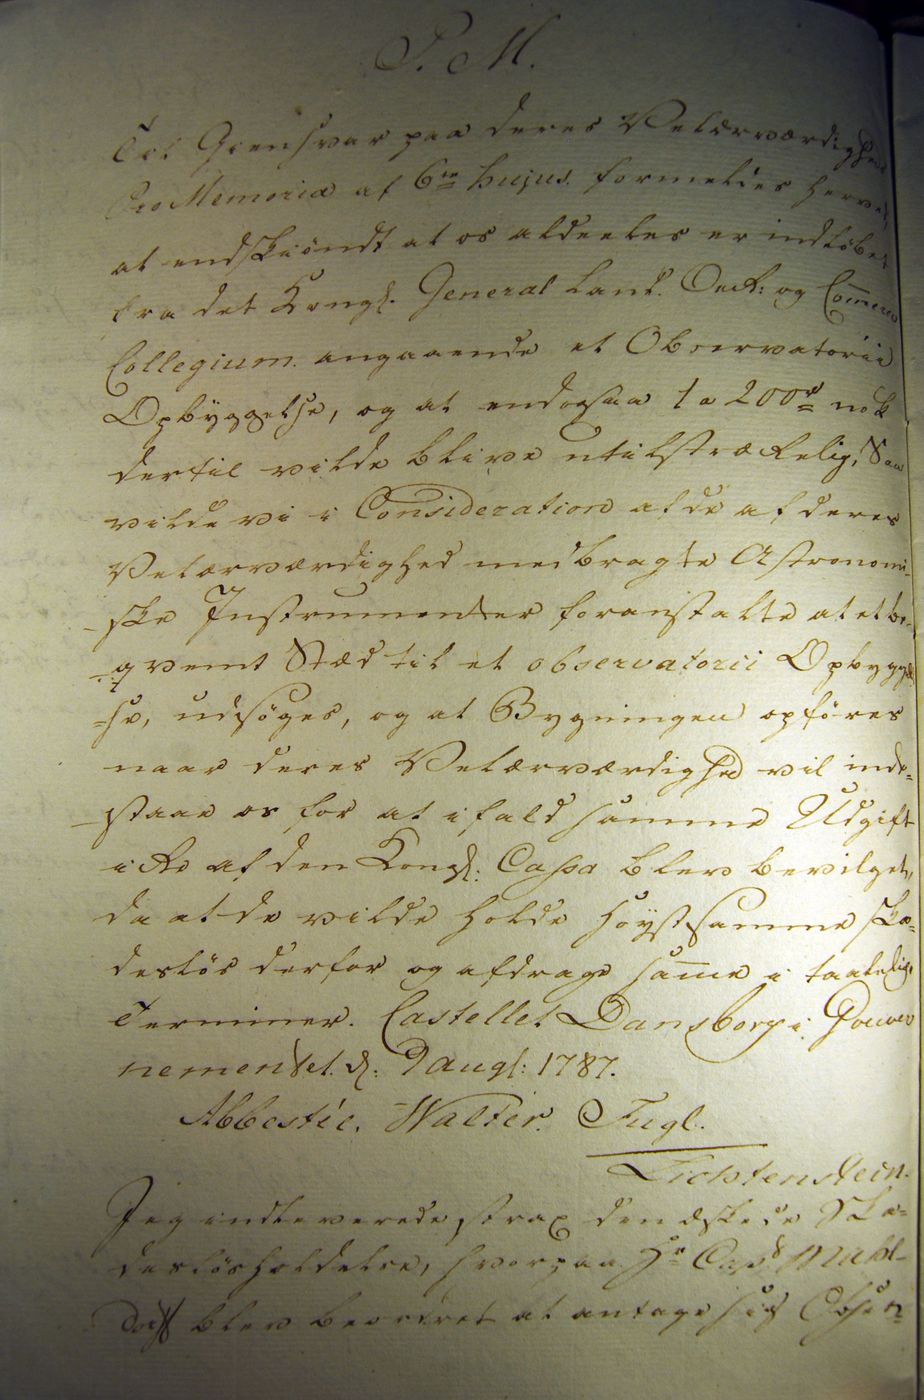 P. M.
Til Giensvar paa deres Velærværdigheds
Pro Memoria af 6te hujus. formeldes herved,
at endskiöndt at os aldeeles er indløbet
fra det Kongl. General Land. Oec: og Commerce
Collegium. angaaende et Observatorii
Opbÿggelse, og at endogsaa 1 a 200 rd nok
dertil vilde blive utilstrækelig, Saa
vilde vi i Consideration af de af deres
Velærværdighed medbragte Astronomi-
-ske Instrumenter foranstalte at et be-
-qvemt Stæd til et observatorii Opbygge
=se, udsöges, og at Bygningen opføres
naar deres Velærværdighed vil inde=
-staae os for at ifald samme Udgift
ike af den Kongl: Cassa blev bevilget,
da at de vilde holde höystsamme ska=
deslös derfor og afdrage samme i taalelige
Terminer. Castellet Dansborg i Gouver
nementet d: 9 Augl: 1787.
Abbestée. Walter. Fugl.
Lichtenstein.
Jeg indleverede strax den æskede Ska=
deslösholdelse, hvorpaa Hr Capt Mühl-
dorff blev beordret at antage sig Obser=